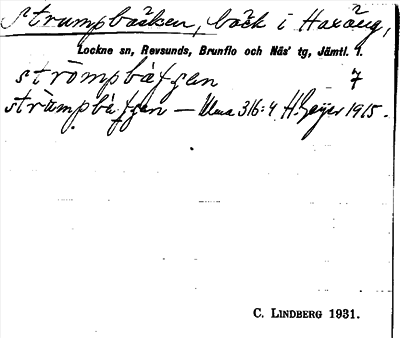 Strumpbäcken, bäck i Haxäng,
Lockne sn, Revsunds, Brunflo och Näs' tg, Jämtl. l.
strömpbäʃʒen 7
strämpbäʃʒen — Ulma 316:4 H. Geijer 1915.
C. LINDBERG 1931.